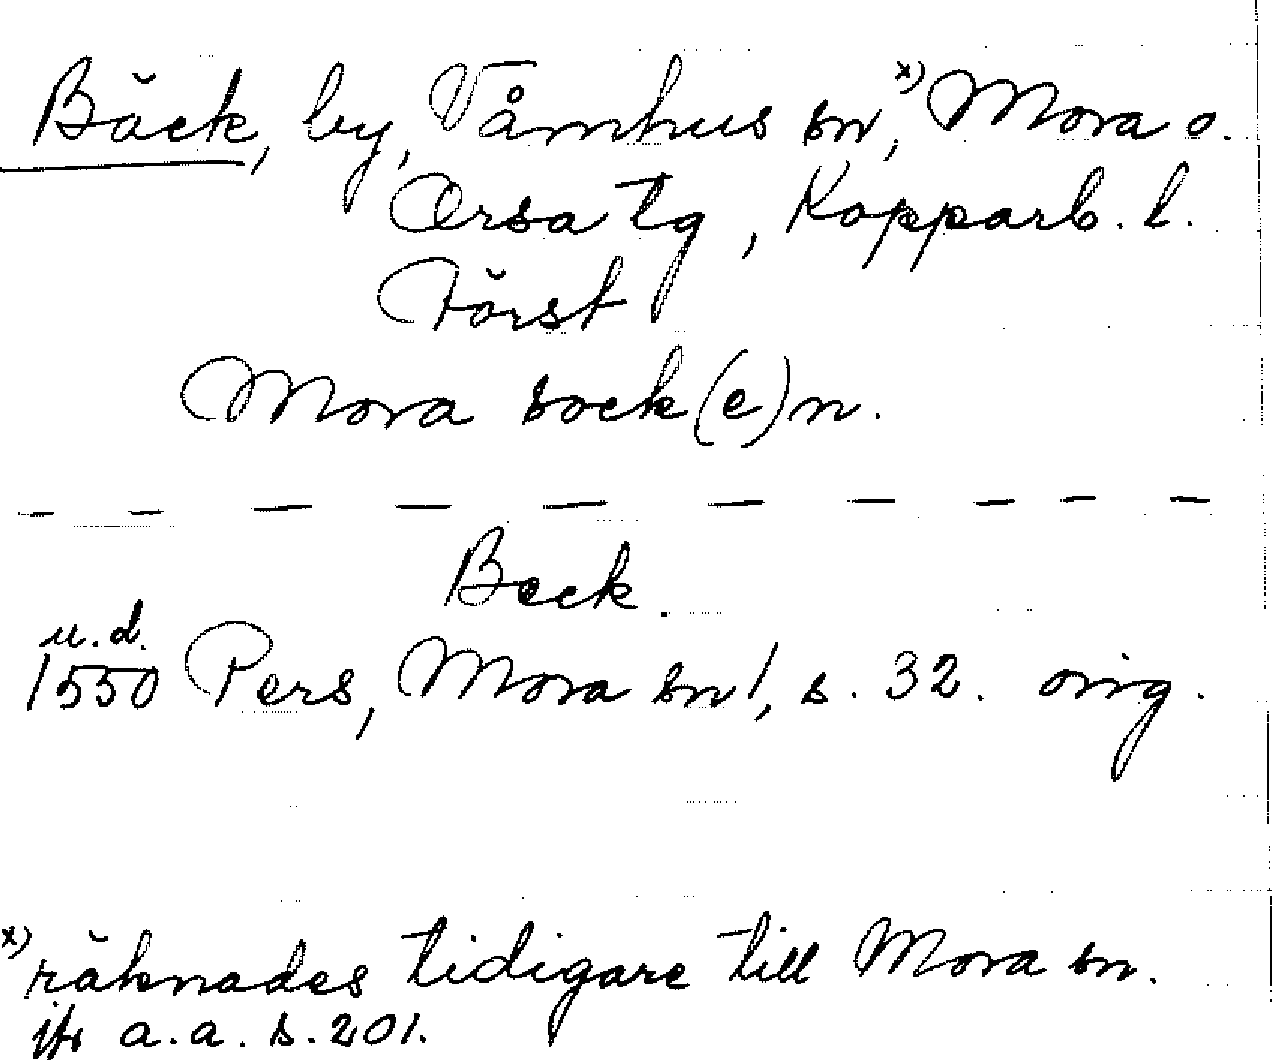 Bäck, by, Våmhus sn,x) Mora o.
Orsa tg, Kopparb. l.
Först
Mora sock(e)n.
Beck.
u.d.
1550 Pers, Mora sn1, s. 32. orig.
x) räknades tidigare till Mora sn.
jfr a.a. s. 201.